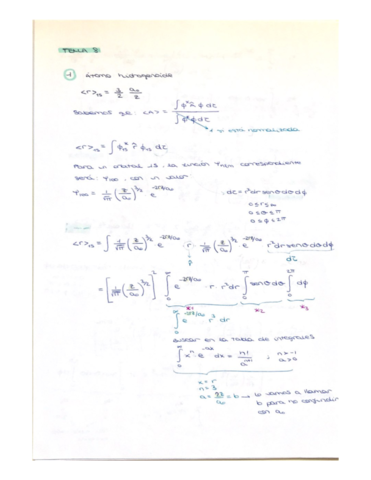 TEMA 8
1 átomo hidrogenoide
<r>₁ₛ = 3/2 a₀/Z
Sabemos que: <A> = ∫φ* Â φ dτ / ∫φ*φ dτ
→ está normalizada
<r>₁ₛ = ∫ φ₁ₛ* r̂ φ₁ₛ dτ
Para un orbital 1s la función Ψₙₗₘ correspondiente
será Ψ₁₀₀ con un valor:
Ψ₁₀₀ = 1/√π (Z/a₀)^3/2 e^-Zr/a₀ ; dτ = r² dr senθ dθ dφ
0≤r≤∞
0≤θ≤π
0≤φ≤2π
<r>₁ₛ = ∫ 1/√π (Z/a₀)^3/2 e^-Zr/a₀ · r · 1/√π (Z/a₀)^3/2 e^-Zr/a₀ r² dr senθ dθ dφ
dτ
= [1/√π (Z/a₀)^3/2]² ∫₀^∞ e^-2Zr/a₀ · r · r² dr ∫₀^π senθ dθ ∫₀^2π dφ
∫₀^∞ e^-2Zr/a₀ r³ dr
buscar en la tabla de integrales
∫₀^∞ xⁿ e^-ax dx = n!/aⁿ⁺¹ ; n>-1
a>0
x = r
n = 3
a = 2Z/a₀ = b → lo vamos a llamar
b para no confundir
con a₀